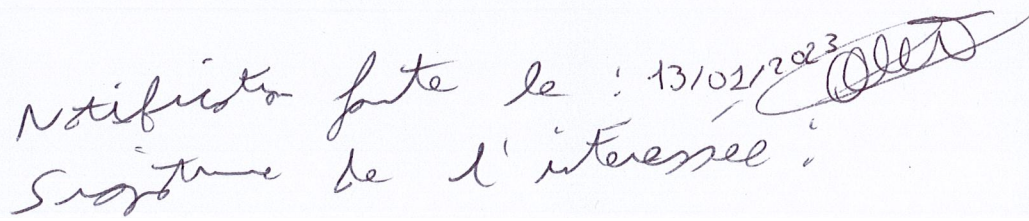 Notification faite le : 13/01/2023
Signature de l'intéressée :